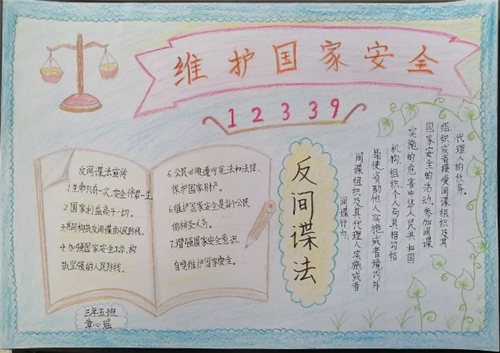 维护国家安全
12339
反间谍法宣传
1.生命只有一次,安全伴君一生
2.国家利益高于一切。
3.共同构筑反间谍人民防线。
4.加强国家安全工作,构
筑坚强的人民防线。
5.公民必须遵守宪法和法律,
保护国家财产。
6.维护国家安全是每个公民
的神圣义务。
7.增强国家安全意识,
自觉维护国家安全。
反间谍法
间谍行为:
间谍组织及其代理人实施或者
指使、资助他人实施,或者境内外
机构、组织、个人与其相勾结
实施的危害中华人民共和国
国家安全的活动。参加间谍
组织或者接受间谍组织及其
代理人的任务。
三年五班
章心瑶